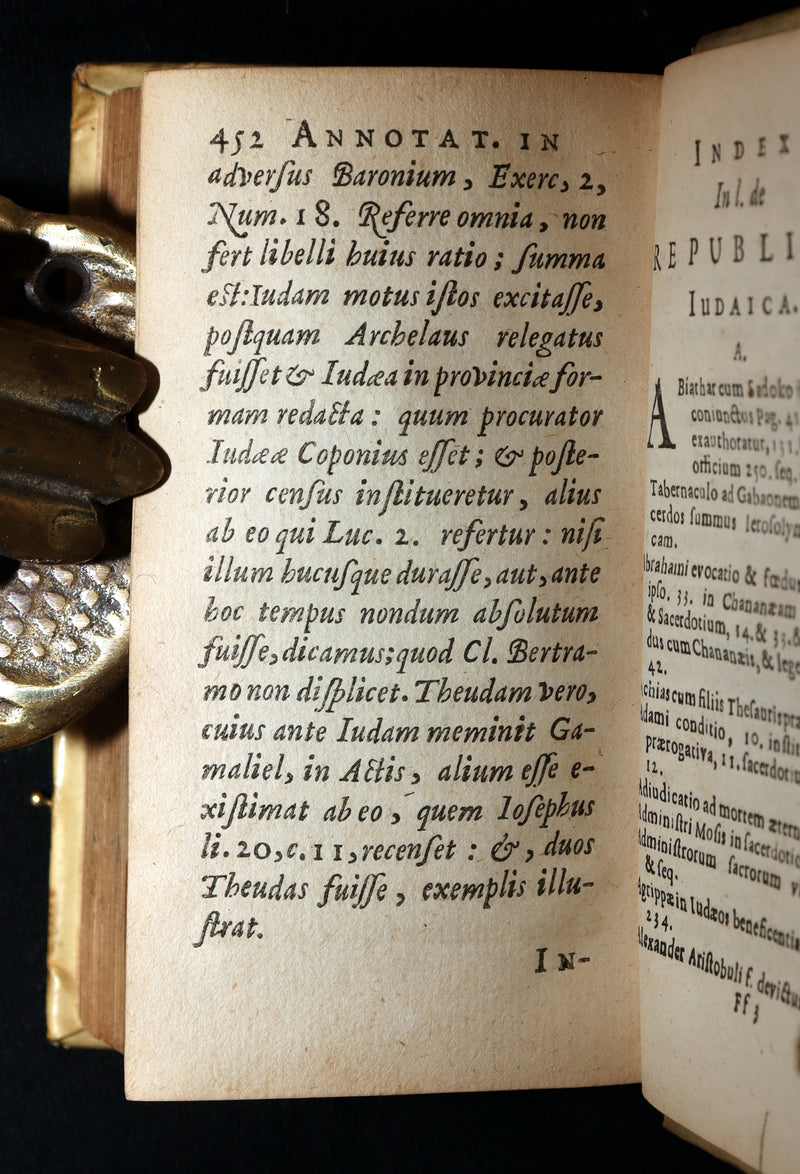 452 ANNOTAT. IN
adverſus Baronium, Exerc, 2,
Num. 18. Referre omnia, non
fert libelli huius ratio; ſumma
eſt: Iudam motus iſtos excitaſſe,
poſtquam Archelaus relegatus
fuiſſet & Iudæa in provinciæ for-
mam redacta: quum procurator
Iudææ Coponius eſſet; & poſte-
rior cenſus inſtitueretur, alius
ab eo qui Luc. 2. refertur: niſi
illum hucuſque duraſſe, aut, ante
hoc tempus nondum abſolutum
fuiſſe, dicamus; quod Cl. Bertra-
mo non diſplicet. Theudam vero,
cuius ante Iudam meminit Ga-
maliel, in Actis, alium eſſe e-
xiſtimat ab eo, quem Ioſephus
li. 20, c. 11, recenſet: &, duos
Theudas fuiſſe, exemplis illu-
ſtrat.
IN-
INDEX
In l. de
REPUBLI
IUDAICA.
A.
ABiathar cum Sadoko
coniunctus Pag.
exauthoratur,
officium 250. ſeq.
Tabernaculo ad Gabaonem
cerdos ſummus Ieroſoly
cam.
brahami evocatio & fœdus
ipſo. 33. in Chananæam
& Sacerdotium, 14. & 33. &
dus cum Chananæis, & lege
42.
chias cum filiis Theſauris
dami conditio, 10. inſtit
prærogativa, 11. ſacerdot
12.
diudicatio ad mortem ætern
dminiſtri Moſis in ſacerdotio
dminiſtrorum ſacrorum v
& ſeq.
grippæ in Iudæos beneficentia
234.
lexander Ariſtobuli f. devictus
Ff 3